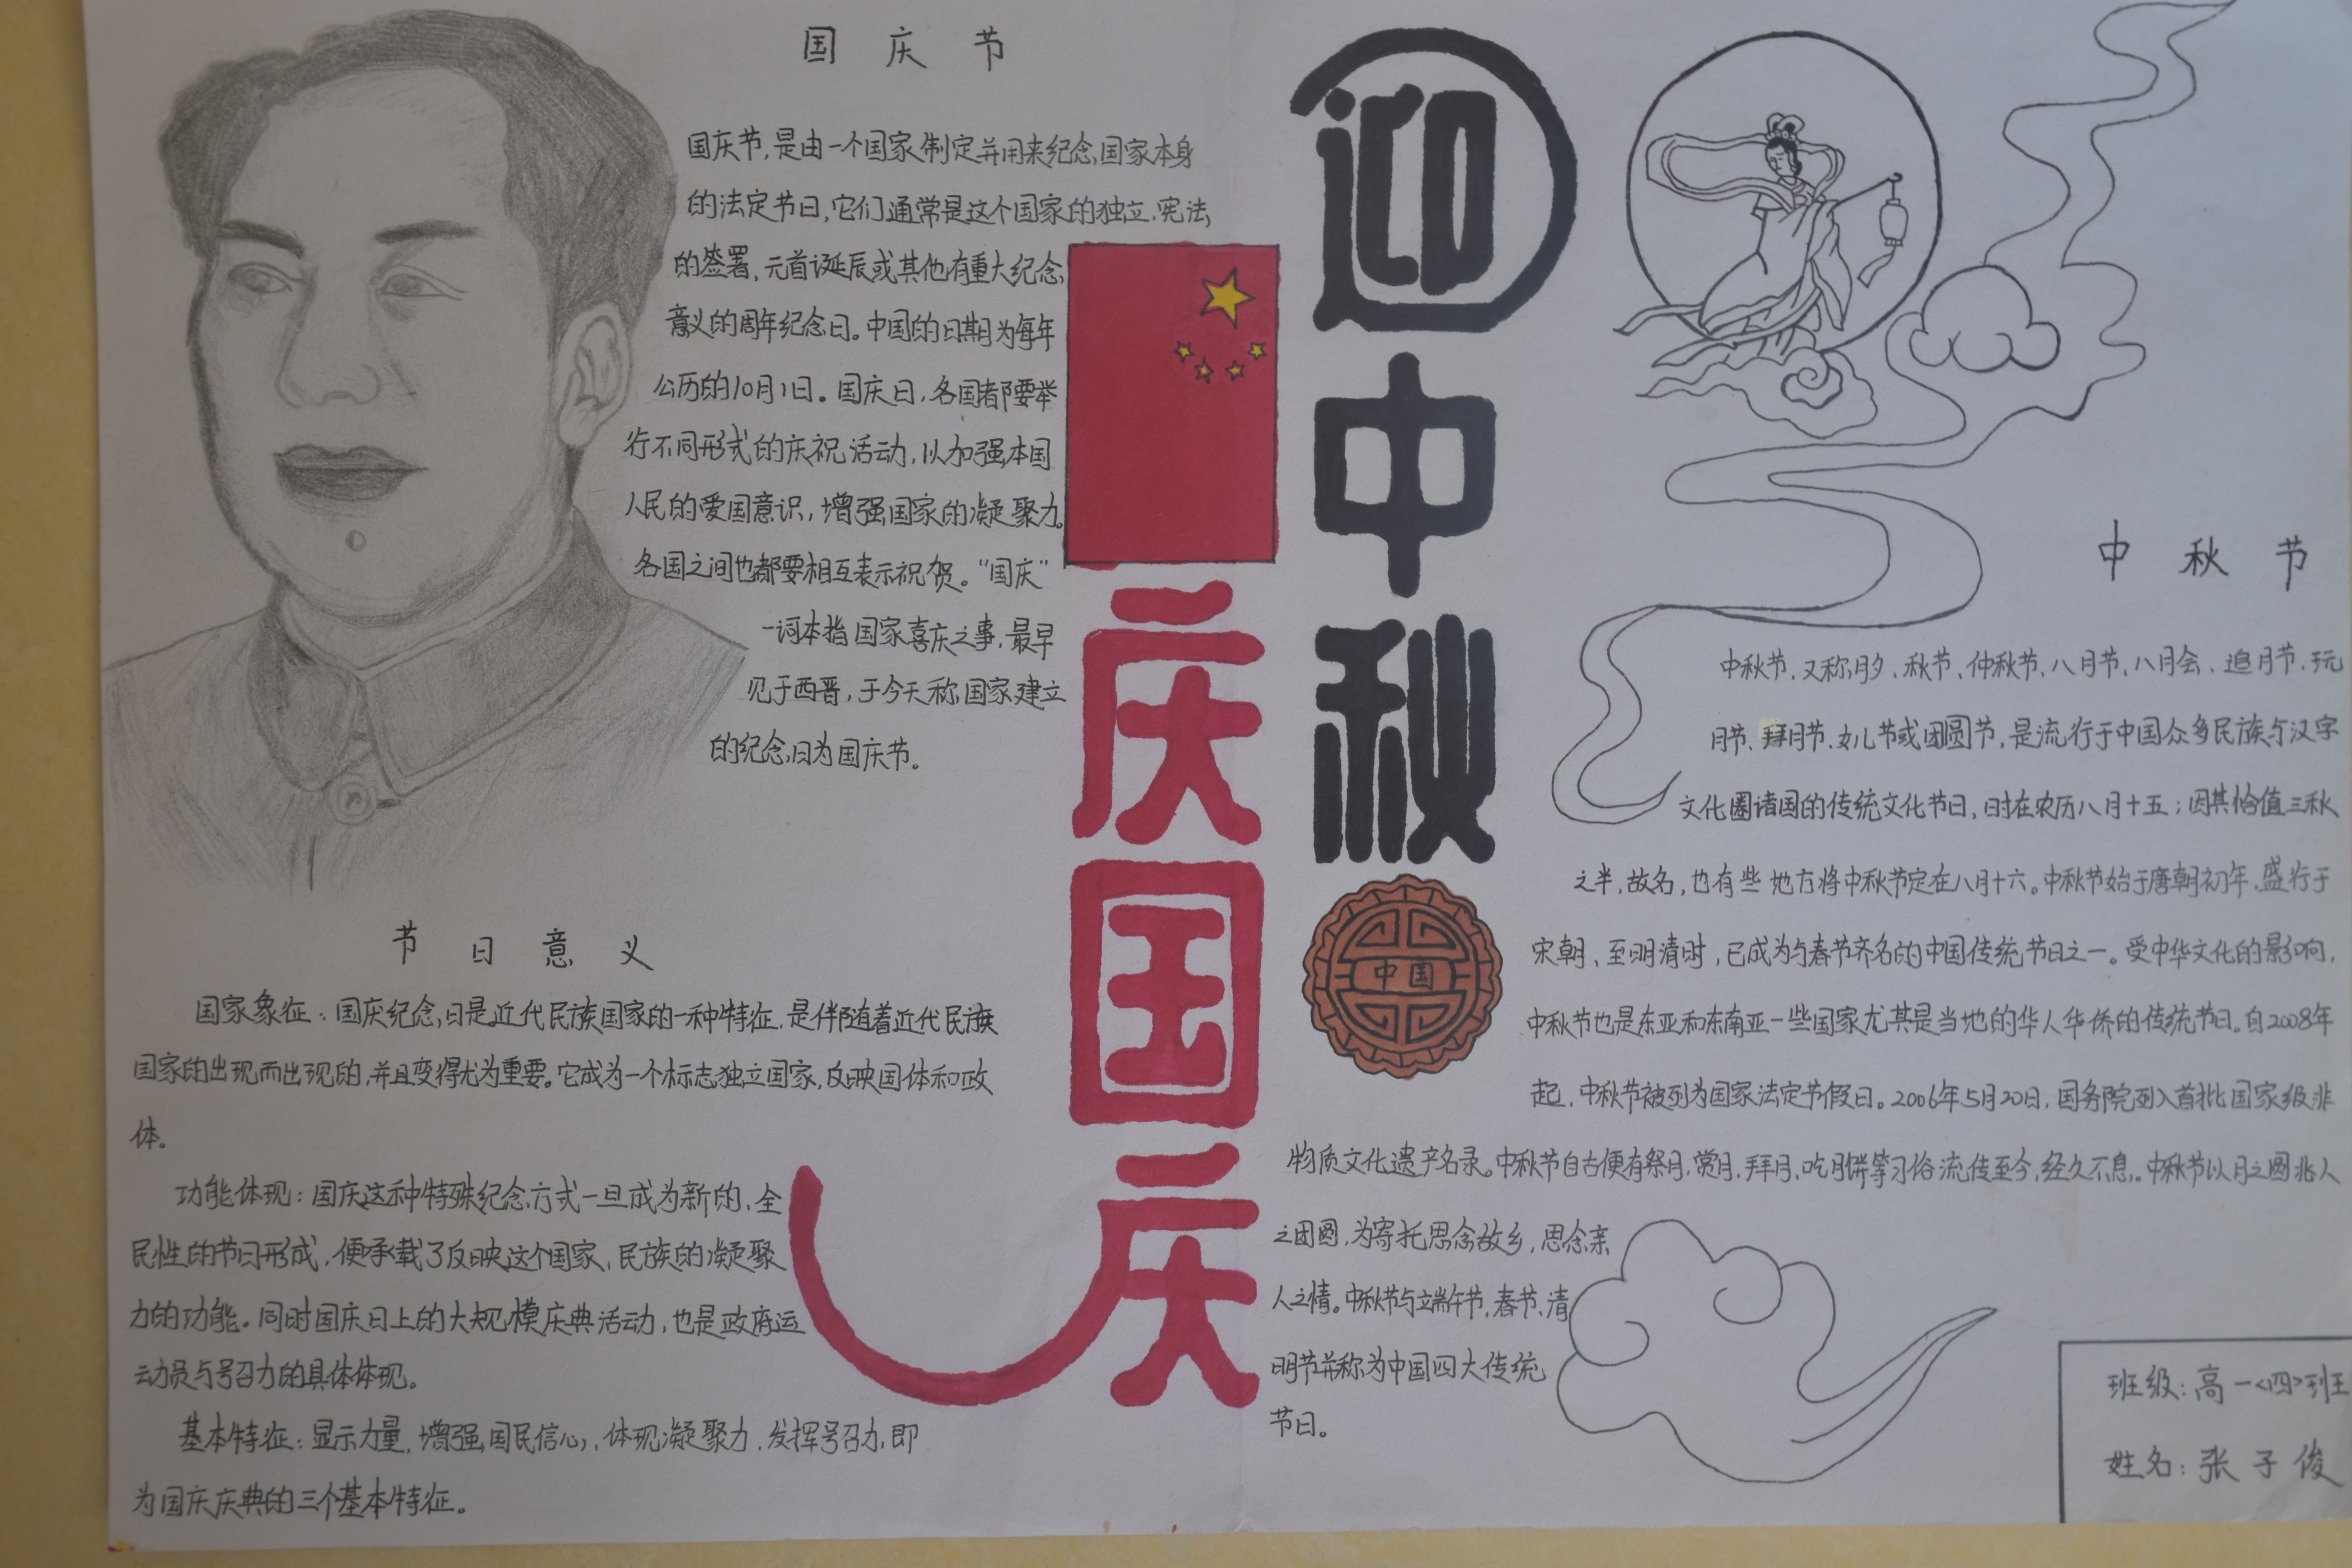 国庆节
国庆节,是由一个国家制定并用来纪念国家本身
的法定节日,它们通常是这个国家的独立、宪法,
的签署,元首诞辰或其他有重大纪念
意义的周年纪念日。中国的日期为每年
公历的10月1日。国庆日,各国都要举
行不同形式的庆祝活动,以加强本国
人民的爱国意识,增强国家的凝聚力。
各国之间也都要相互表示祝贺。“国庆”
一词本指国家喜庆之事,最早
见于西晋,于今天称国家建立
的纪念日为国庆节。
节日意义
国家象征:国庆纪念日是近代民族国家的一种特征,是伴随着近代民族
国家的出现而出现的,并且变得尤为重要。它成为一个标志独立国家,反映国体和政
体。
功能体现:国庆这种特殊纪念方式一旦成为新的、全
民性的节日形成,便承载了反映这个国家、民族的凝聚
力的功能。同时国庆日上的大规模庆典活动,也是政府运
动员与号召力的具体体现。
基本特征:显示力量,增强国民信心,体现凝聚力,发挥号召力,即
为国庆庆典的三个基本特征。
庆国庆
迎中秋
中国
中秋节
中秋节,又称月夕、秋节、仲秋节、八月节、八月会、追月节、玩
月节、拜月节、女儿节或团圆节,是流行于中国众多民族与汉字
文化圈诸国的传统文化节日,时在农历八月十五;因其恰值三秋
之半,故名,也有些地方将中秋节定在八月十六。中秋节始于唐朝初年,盛行于
宋朝,至明清时,已成为与春节齐名的中国传统节日之一。受中华文化的影响,
中秋节也是东亚和东南亚一些国家尤其是当地的华人华侨的传统节日。自2008年
起,中秋节被列为国家法定节假日。2006年5月20日,国务院列入首批国家级非
物质文化遗产名录。中秋节自古便有祭月,赏月,拜月,吃月饼等习俗,流传至今,经久不息。中秋节以月之圆兆人
之团圆,为寄托思念故乡,思念亲
人之情。中秋节与端午节,春节、清
明节并称为中国四大传统
节日。
班级:高一<四>班
姓名:张子俊